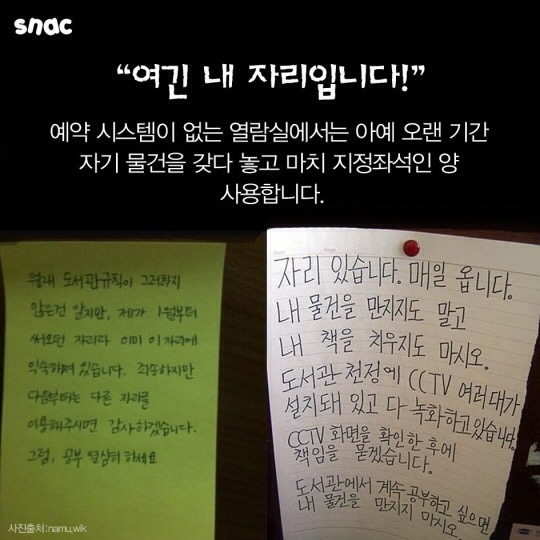 snac
“여긴 내 자리입니다!”
예약 시스템이 없는 열람실에서는 아예 오랜 기간
자기 물건을 갖다 놓고 마치 지정좌석인 양
사용합니다.
원래 도서관규칙이 그러하지
않은건 알지만, 제가 1월부터
써오던 자리라 이미 이 자리에
익숙해져 있습니다. 죄송하지만
다음부터는 다른 자리를
이용해주시면 감사하겠습니다.
그럼, 공부 열심히 하세요
자리 있습니다. 매일 옵니다.
내 물건을 만지지도 말고
내 책을 치우지도 마시오.
도서관 천정에 CCTV 여러대가
설치돼 있고 다 녹화하고있습니다.
CCTV 화면을 확인한 후에
책임을 묻겠습니다.
도서관에서 계속 공부하고 싶으면
내 물건을 만지지 마시오.
사진출처:namu.wik